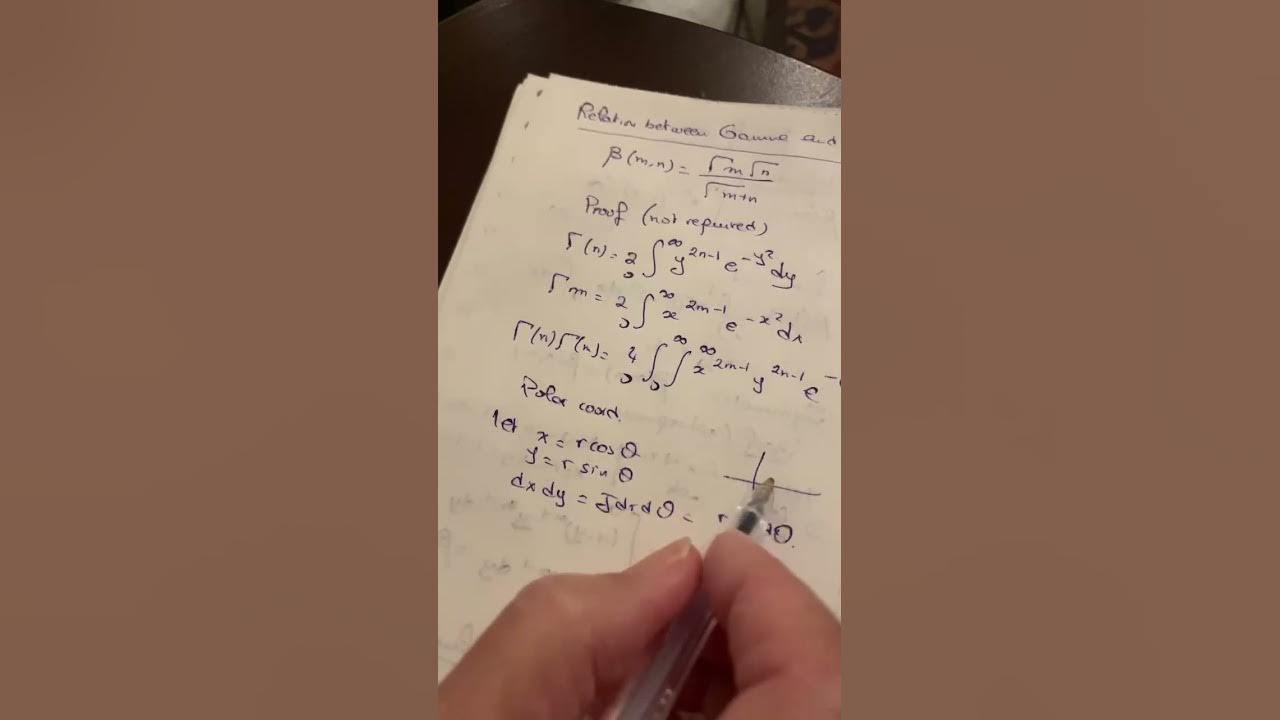 Relation between Gamma and
β(m,n) = Γm Γn / Γm+n
Proof (not required)
Γ(n) = 2 ∫₀^∞ y^2n-1 e^-y² dy
Γm = 2 ∫₀^∞ x^2m-1 e^-x² dx
Γ(n)Γ(n) = 4 ∫₀^∞ ∫₀^∞ x^2m-1 y^2n-1 e^-
Polar coord.
let x = r cos θ
y = r sin θ
dx dy = J dr dθ = r dθ.